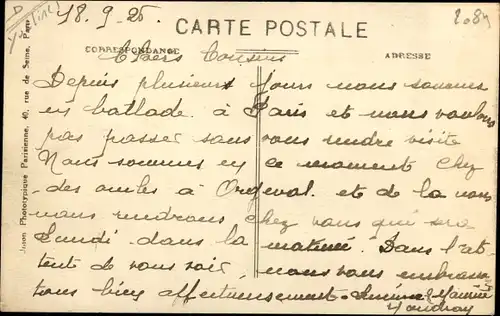 18.9.25.
CARTE POSTALE
CORRESPONDANCE
ADRESSE
Chers Cousins
Depuis plusieurs jours nous sommes
en ballade. à Paris et nous voulons
pas passer sans vous rendre visite
Nous sommes en ce moment chez
des amies à Orgeval. et de la nous
nous rendrons chez vous qui sera
Lundi dans la matinée. Dans l'at-
tente de vous voir, nous vous embrassons
tous bien affectueusement.
Union Phototypique Parisienne, 40, rue de Seine, Paris